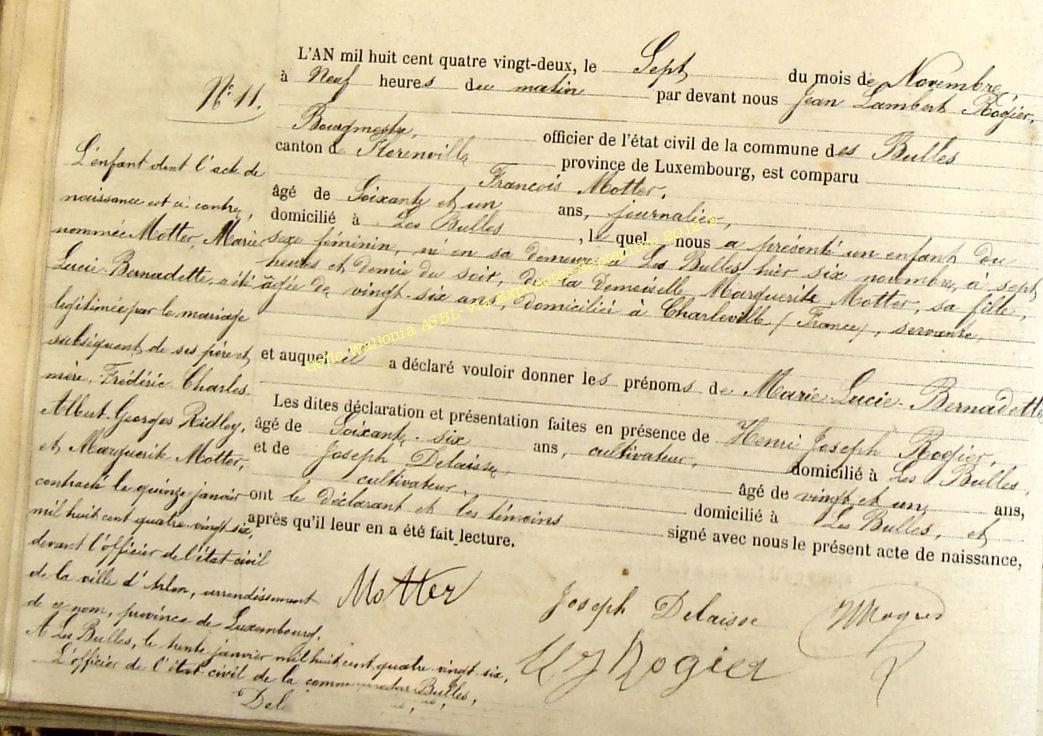 L'AN mil huit cent quatre vingt-deux, le Sept du mois de Novembre,
à Neuf heures du matin par devant nous Jean Lambert Rogier,
Bourgmestre, officier de l'état civil de la commune des Bulles
canton de Florenville province de Luxembourg, est comparu
François Motter,
âgé de Soixante et un ans, journalier,
domicilié à Les Bulles, le quel nous a présenté un enfant du
sexe féminin, né en sa demeure à Les Bulles, hier six novembre, à sept
heures et demie du soir, de la Demoiselle Marguerite Motter, sa fille,
âgée de vingt-six ans, domiciliée à Charleville (France), servante,
et auquel il a déclaré vouloir donner les prénoms de Marie-Lucie-Bernadette
Les dites déclaration et présentation faites en présence de Henri Joseph Rogier,
âgé de Soixante-six ans, cultivateur, domicilié à Les Bulles,
et de Joseph Delaisse, âgé de vingt et un ans,
cultivateur, domicilié à Les Bulles, et
ont le déclarant et les témoins signé avec nous le présent acte de naissance,
après qu'il leur en a été fait lecture.
Motter Joseph Delaisse
H J Rogier
N° 11.
L'enfant dont l'acte de
naissance est ci contre,
nommée Motter, Marie
Lucie-Bernadette, a été
légitimée par le mariage
subséquent de ses père et
mère, Frédéric Charles
Albert-Georges Ridley,
et Marguerite Motter,
contracté le quinze janvier
mil huit cent quatre vingt six,
devant l'officier de l'état civil
de la ville d'Arlon, arrondissement
de ce nom, province de Luxembourg.
A Les Bulles, le trente janvier mil huit cent quatre vingt six,
L'officier de l'état civil de la commune des Bulles,
Del
Wallonia ASBL septembre 2012 ©